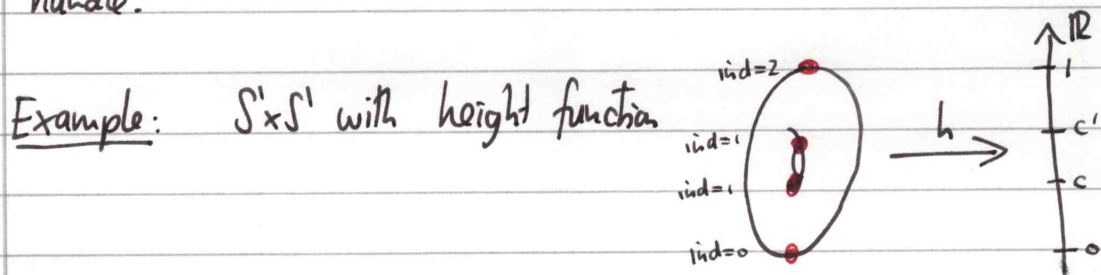 handle.
Example: S¹×S¹ with height function
ind=2
ind=1
ind=1
ind=0
h
ℝ
1
c'
c
0